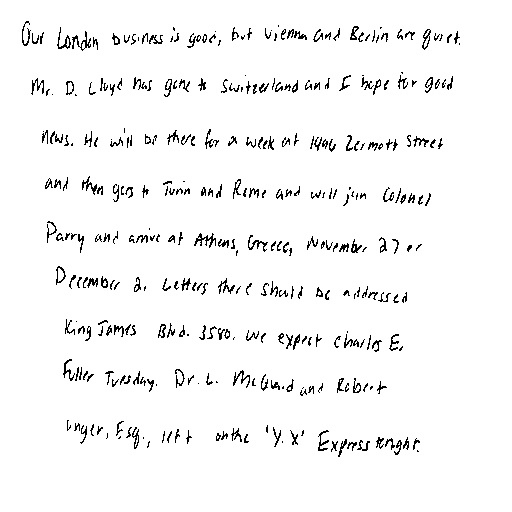 Our London business is good, but Vienna and Berlin are quiet.
Mr. D. Lloyd has gone to Switzerland and I hope for good
news. He will be there for a week at 1496 Zermott Street
and then goes to Turin and Rome and will join Colonel
Parry and arrive at Athens, Greece, November 27 or
December 2. Letters there should be addressed
King James Blvd. 3580. We expect Charles E.
Fuller Tuesday. Dr. L. McQuaid and Robert
Unger, Esq., left on the 'Y.X' Express tonight.